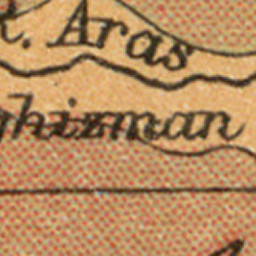 R. Aras
ghizman